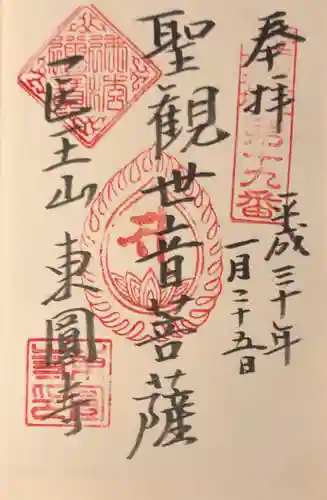 奉拝
第十九番
平成三十年
一月二十五日
聖観世音菩薩
医王山 東圓寺